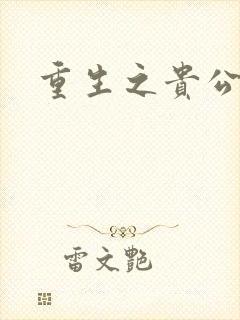 重生之貴公
雷文艷